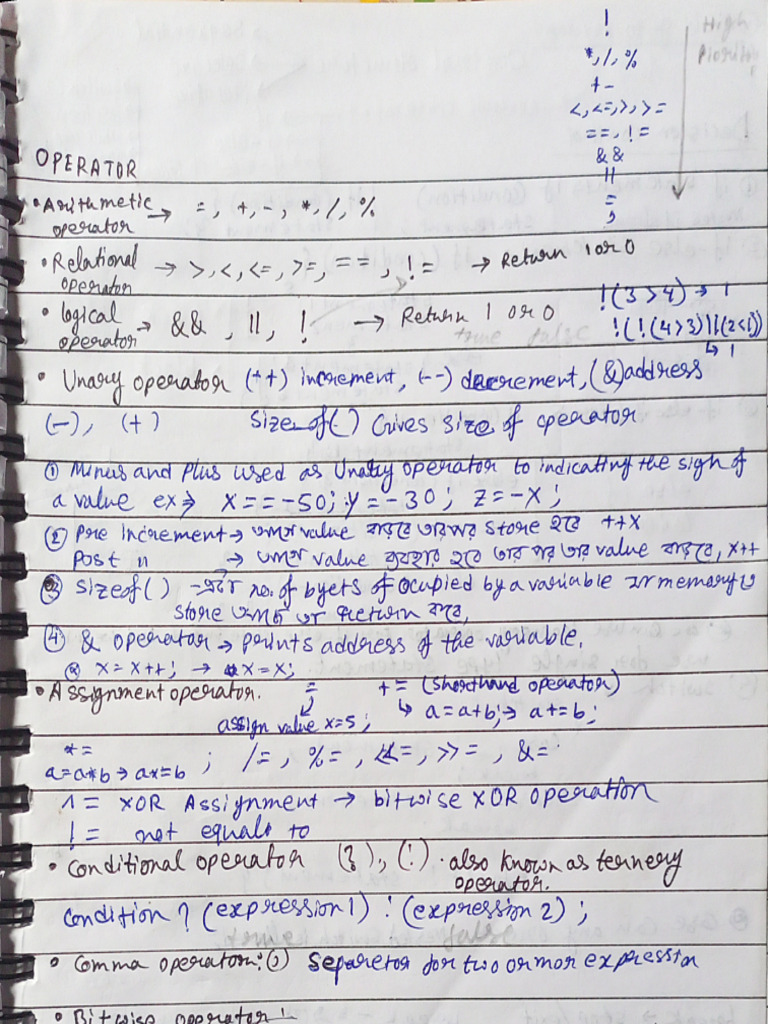 High
Priority
!
*, /, %
+ -
<, <=, >, >=
==, !=
&&
||
=
,
OPERATOR
• Arithmetic operator → =, +, -, *, /, %
• Relational operator → >, <, <=, >=, ==, != → Return 1 or 0
• logical operator → &&, ||, ! → Return 1 or 0
!(3>4) → 1
!(!(4>3)||(2<1))
↳ 1
• Unary operator (++) increment, (--) decrement, (&) address
(-), (+) Size of(-) Gives size of operator
① Minus and Plus used as Unary operator to indicating the sigh of
a value ex⇒ x==-50; y=-30; z=-x;
② Pre increment → value বাড়বে তারপর store হবে ++x
Post 11 → value ব্যবহার হবে তার পর তার value বাড়বে, x++
③ sizeof() - no. of byets of ocupied by a variable memory
store return করে,
④ & operator → prints address of the variable.
x=x++; → x=x;
• Assignment operator. = += (shorthand operator)
assign value x=5; ↳ a=a+b; ⇒ a+=b;
*= ; /=, %=, <<=, >>=, &=
a=a*b → a*=b
^= XOR Assignment → bitwise XOR operation
!= not equals to
• Conditional operator (?), (:) . also known as ternery
operator.
Condition ? (expression1) : (expression 2) ;
• Comma operator: (,) Separetor for two or mor expressin
• Bitwise operator: